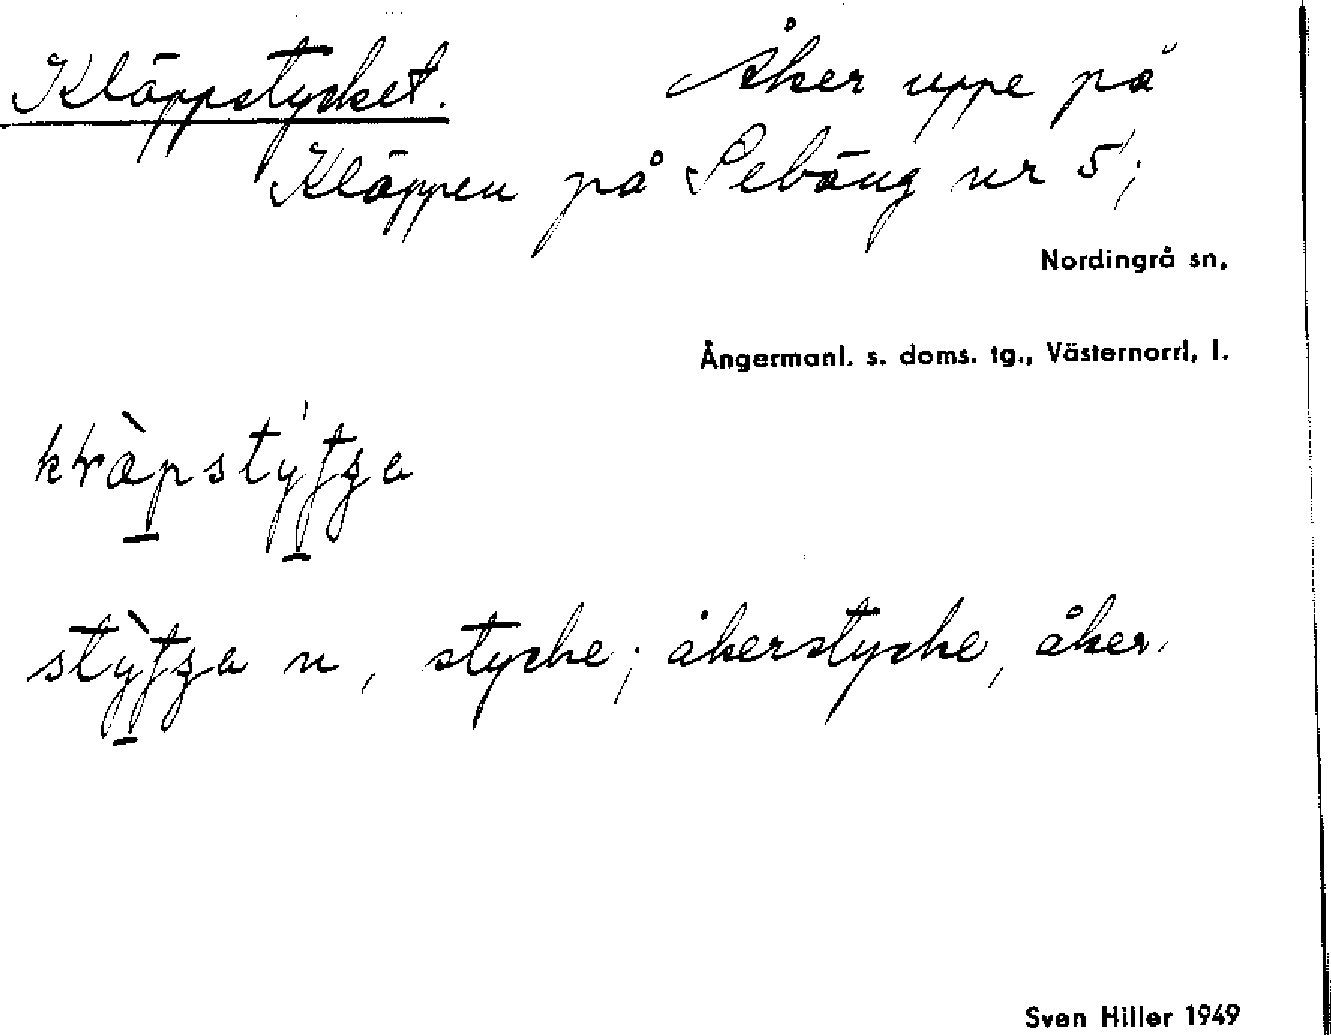 Kläppstycket. Åker uppe på
Kläppen på Sebäng nr 5;
Nordingrå sn,
Ångermanl. s. doms. tg., Västernorrl. l.
n, stycke; åkerstycke, åker.
Sven Hiller 1949